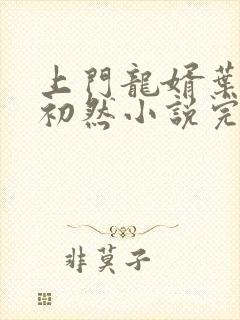 上門龍婿葉
初然小説完
非莫子